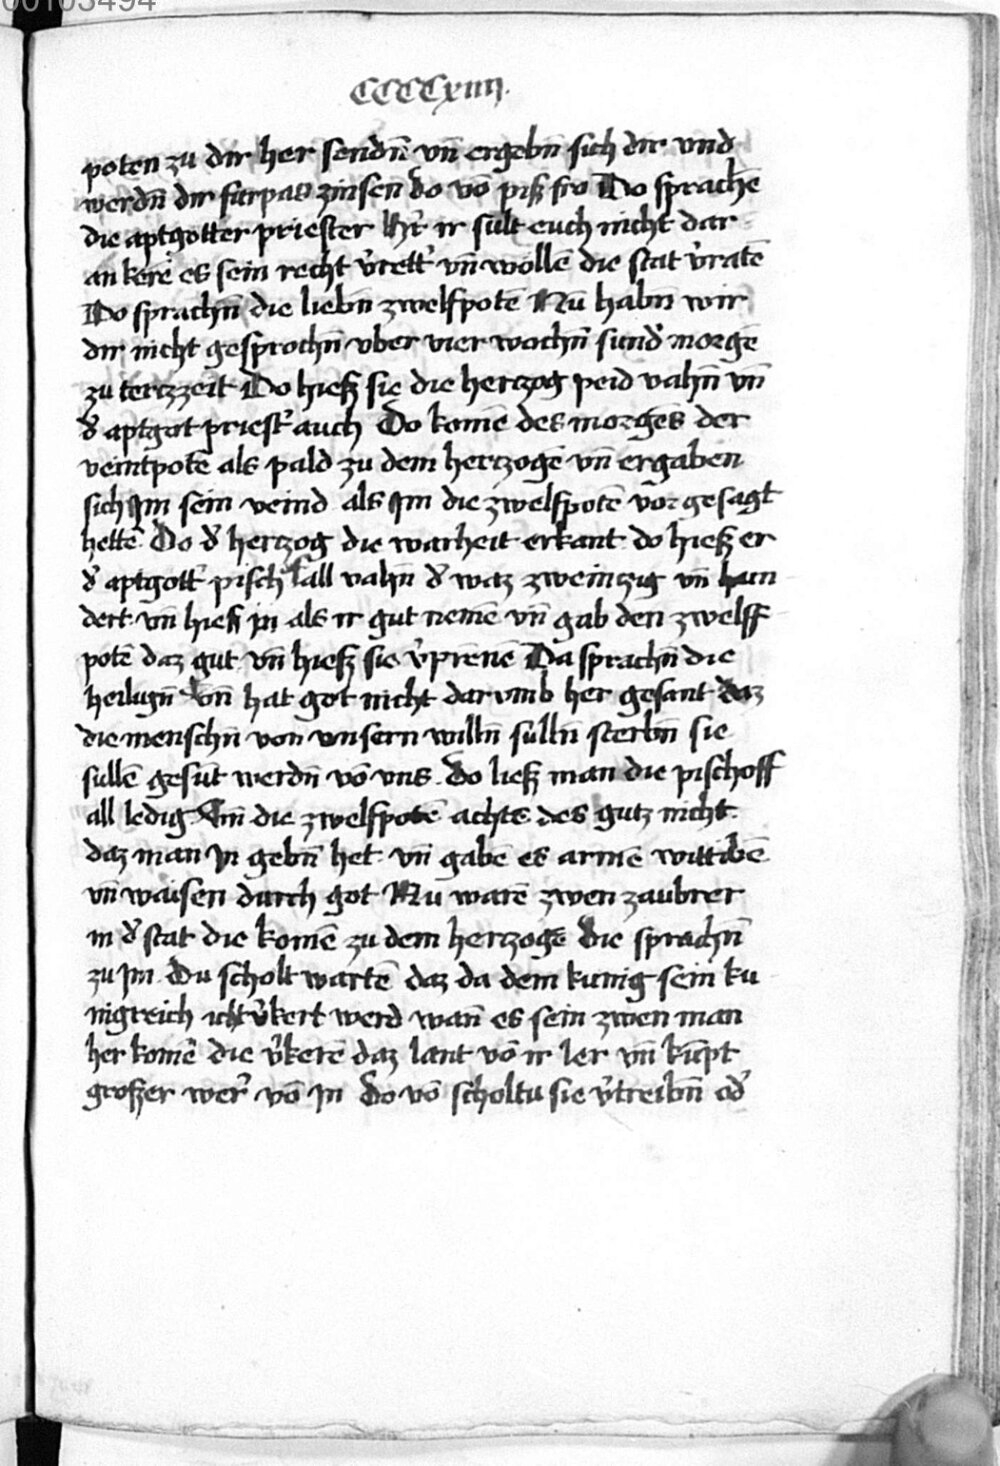 00103494
CCCCxiiij.
poten zu dir her sendn̄ vn̄ ergebn̄ sich dir vnd
werdn̄ dir furpas zinsen do vō piß fro Do sprachē
die aptgotter priester h̄r ir sult euch nicht dar
an kerē es sein recht v̓rett̓ vn̄ wollē die stat v̓ratē
Do sprachn̄ die liebn̄ zwelfpotē Nū habn̄ wir
dir nicht gesprochn̄ vber vier wochn̄ sund̓ morgē
zu tertzzeit Do hieß sie die hertzog peid vahn̄ vn̄
d̓ aptgot priest̓ auch Do komē des morgēs der
veintpotē als pald zu dem hertzogē vn̄ ergaben
sich Jm sein veind als Jm die zwelfpotē vor gesagt
hettē Do d̓ hertzog die warheit erkant do hieß er
d̓ aptgott̓ pisch f all vahn̄ d̓ waz zweintzig vn̄ hun
dert vn̄ hieß jn als ir gut nemē vn̄ gab den zwelff
potē daz gut vn̄ hieß sie v̓prenē Da sprachn̄ die
heilign̄ Vn̄ hat got nicht darvmb her gesant daz
die menschn̄ von vnsern willn̄ sulln̄ sterbn̄ sie
sullē gesūt werdn̄ vō vns Do ließ man die pischoff
all ledig Vn̄ die zwelfpotē achtē des gutz nicht
daz man Jn gebn̄ het vn̄ gabē es armē wittibē
vn̄ waisen durch got Nu warē zwen zaubrer
in d̓ stat die komē zu dem hertzogē die sprachn̄
zu Jm Du scholt wartē daz da dem kunig sein ku
nigreich icht v̓kert werd wan̄ es sein zwen man
her komē die v̓kerē daz lant vō ir ler vn̄ kūpt
großer wer̓ vō Jn Do vō scholtu sie v̓treibn̄ od̓